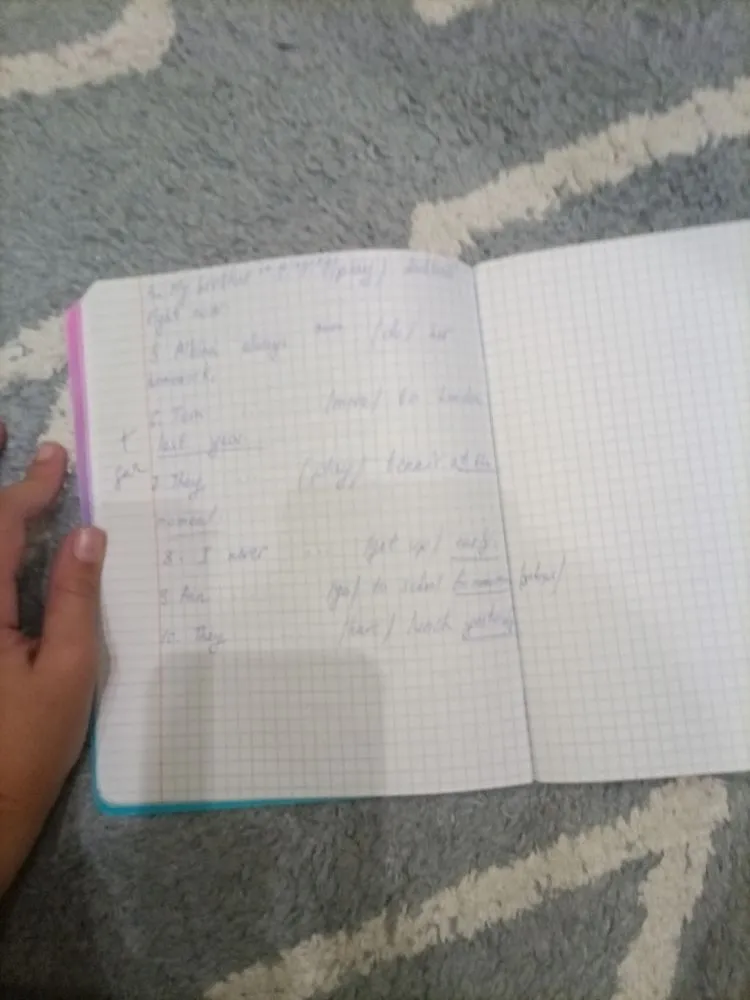 My brother (play)
right now
5. Albina always (do) her
homework.
6. Tom (move) to London
last year
7. They (play) tennis at the
moment
8. I never (get up) early.
9. Ann (go) to school
10. They (have) lunch yesterday